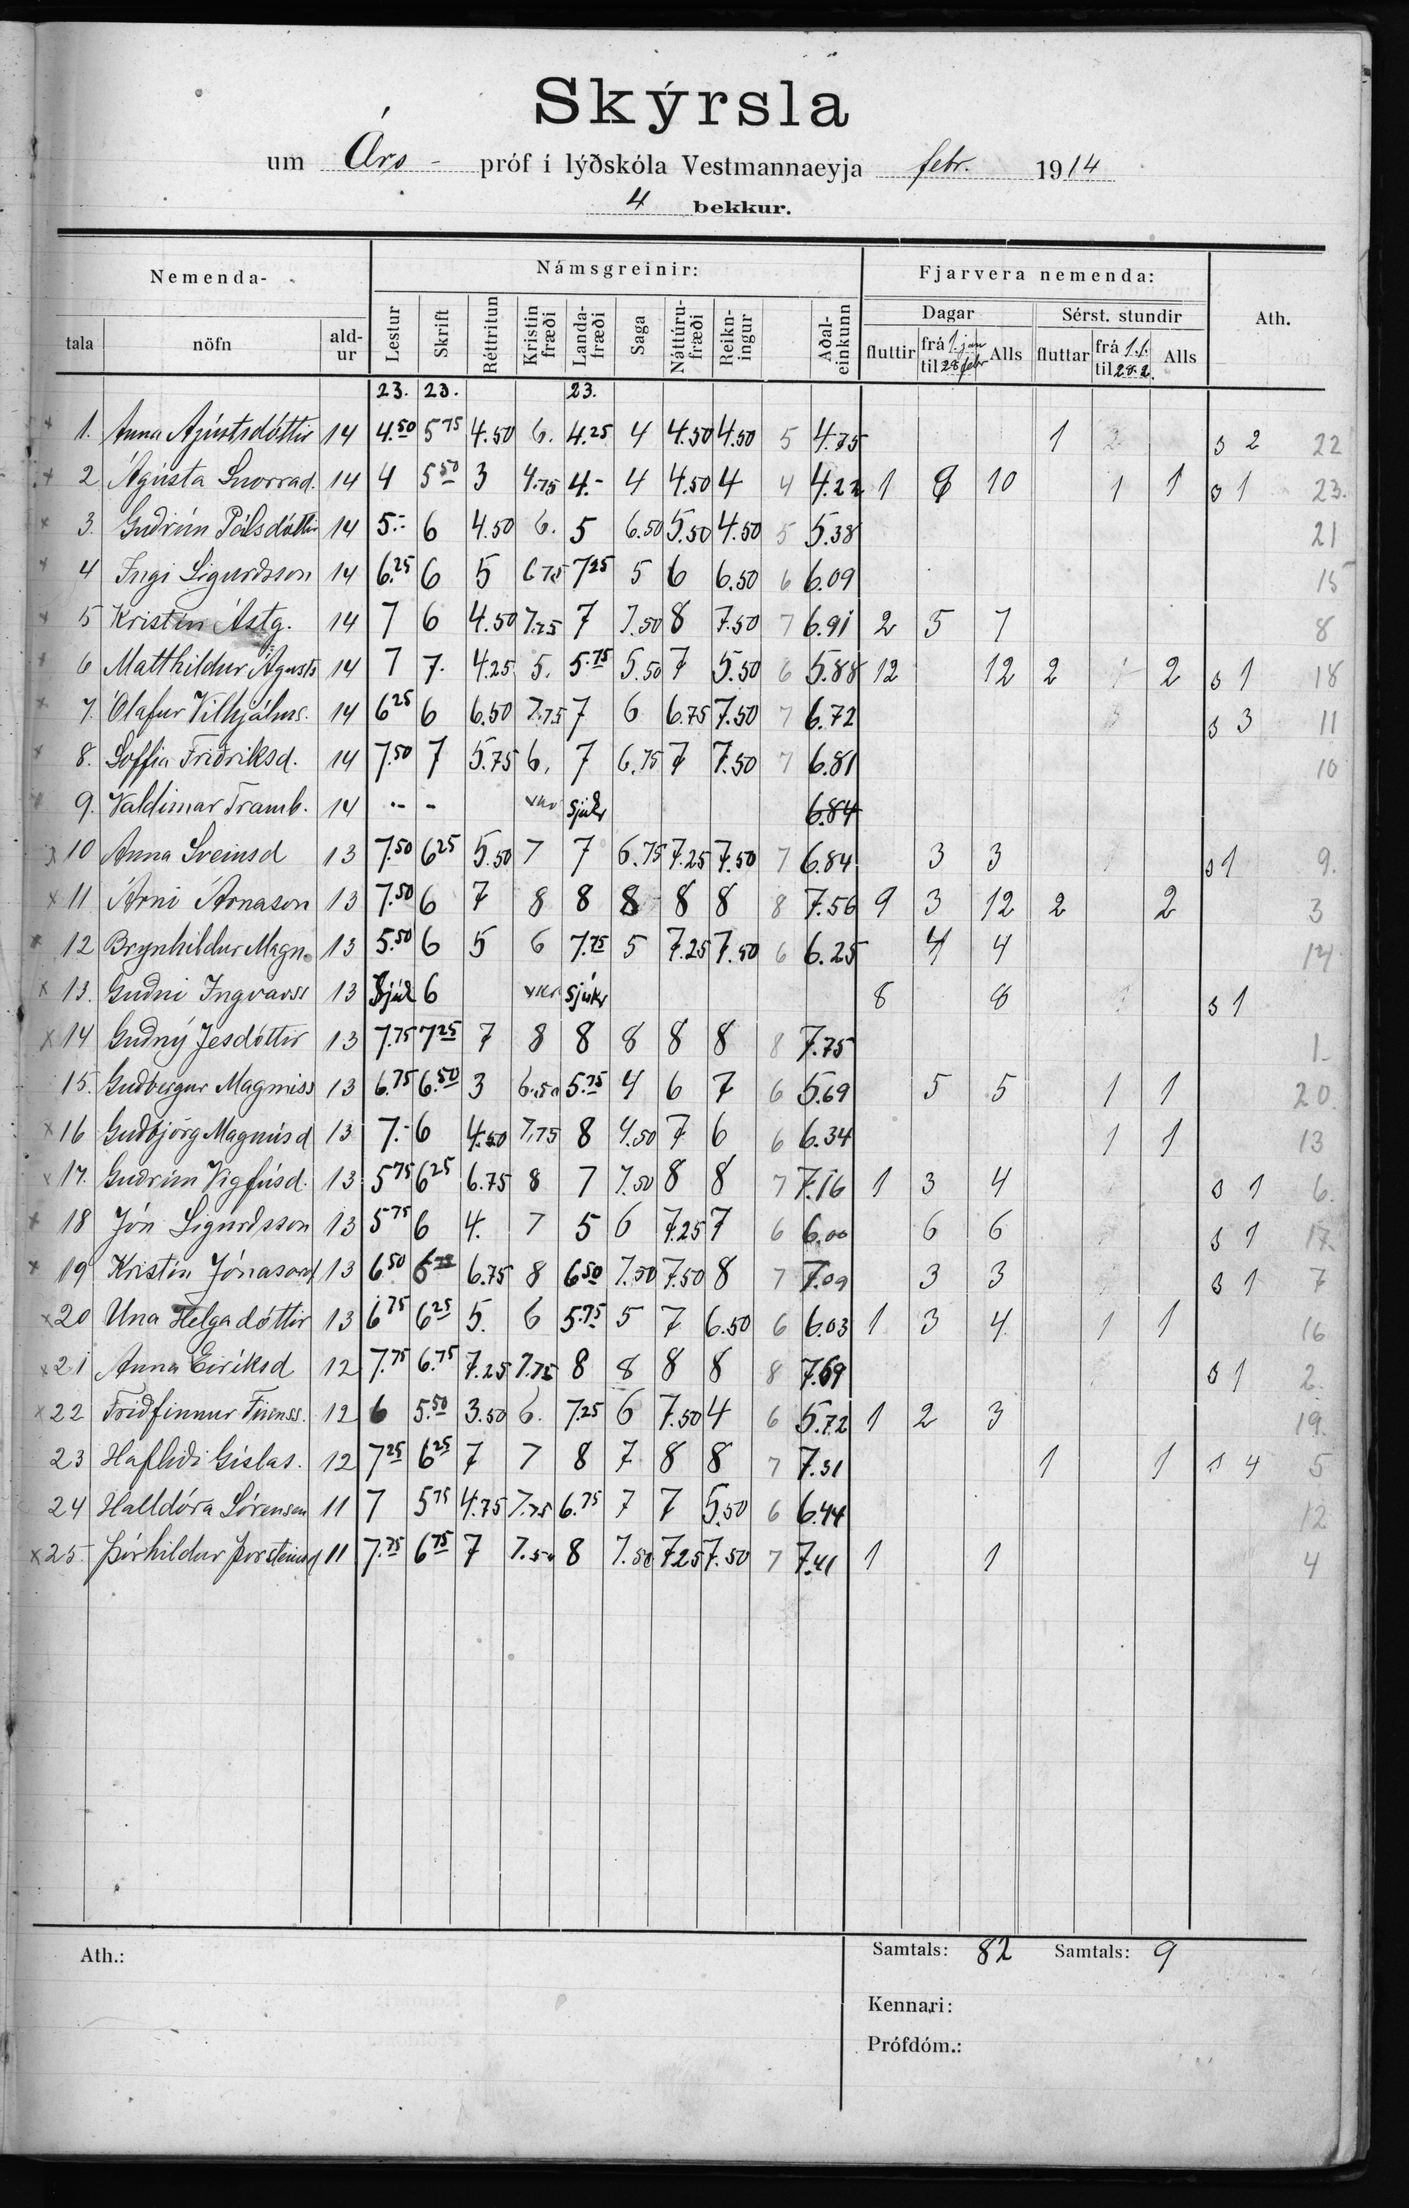 Skýrsla
um Árs- próf í lýðskóla Vestmannaeyja febr. 1914
4 bekkur.
Nemenda- Námsgreinir: Fjarvera nemenda: Ath.
Dagar Sérst. stundir
tala nöfn ald-ur Lestur Skrift Réttritun Kristinfræði Landafræði Saga Náttúrufræði Reikningur Aðaleinkunn fluttir frá 1. jan til 28 febr Alls fluttar frá 1.1. til 28.2. Alls
23. 23. 23.
1. Anna Ágústsdóttir 14 4.50 5 75 4.50 6. 4.25 4 4.50 4.50 5 4.75 1 2 s 2 22
2 Ágústa Snorrad. 14 4 5 50 3 4.75 4.- 4 4.50 4 4 4.22 1 9 10 1 1 s 1 23.
3. Guðrún Pálsdóttir 14 5.- 6 4.50 6. 5 6.50 5.50 4.50 5 5.38 21
4 Ingi Sigurðsson 14 6.25 6 5 6 75 7 25 5 6 6.50 6 6.09 15
5 Kristín Ástg. 14 7 6 4.50 7.25 7 7.50 8 7.50 7 6.91 2 5 7 8
6 Matthildur Ágústs 14 7 7. 4.25 5. 5.75 5.50 7 5.50 6 5.88 12 12 2 2 s 1 18
7. Ólafur Vilhjálms. 14 6 25 6 6.50 7.75 7 6 6.75 7.50 7 6.72 s 3 11
8. Soffía Friðriksd. 14 7.50 7 5.75 6. 7 6.75 7 7.50 7 6.81 10
9. Valdimar Tramb. 14 -- - sjúkr 6.84
10 Anna Sveinsd 13 7.50 6 25 5.50 7 7 6.75 7.25 7.50 7 6.84 3 3 s 1 9.
11 Árni Árnason 13 7.50 6 7 8 8 8 8 8 8 7.56 9 3 12 2 2 3
12 Brynhildur Magn. 13 5.50 6 5 6 7.75 5 7.25 7.50 6 6.25 4 4 14
13. Guðni Ingvarss 13 Sjúk 6 sjúkr 8 8 s 1
14 Guðný Jesdóttir 13 7.75 7 25 7 8 8 8 8 8 8 7.75 1.
15. Guðbergur Magnúss 13 6.75 6.50 3 6.50 5.75 4 6 7 6 5.69 5 5 1 1 20.
16 Guðbjörg Magnúsd 13 7.- 6 4.50 7.75 8 4.50 7 6 6 6.34 1 1 13
17. Guðrún Vigfúsd. 13 5 75 6 25 6.75 8 7 7.50 8 8 7 7.16 1 3 4 s 1 6.
18 Jón Sigurðsson 13 5 75 6 4. 7 5 6 7.25 7 6 6.00 6 6 s 1 17.
19 Kristín Jónasard 13 6.50 6 6.75 8 6 50 7.50 7.50 8 7 7.09 3 3 s 1 7
20 Una Helgadóttir 13 6 75 6 25 5. 6 5.75 5 7 6.50 6 6.03 1 3 4 1 1 16
21 Anna Eiríksd 12 7.75 6.75 7.25 7.75 8 8 8 8 8 7.69 s 1 2.
22 Friðfinnur Finnss. 12 6 5.50 3.50 6. 7.25 6 7.50 4 6 5.72 1 2 3 19.
23 Hafliði Gíslas. 12 7 25 6 25 7 7 8 7 8 8 7 7.31 1 1 s 4 5
24 Halldóra Sörensen 11 7 5 75 4.75 7.75 6.75 7 7 5.50 6 6.44 12
25. Þórhildur Þorsteinsd 11 7.75 6 75 7 7.50 8 7.50 7.25 7.50 7 7.41 1 1 4
Ath.: Samtals: 82 Samtals: 9
Kennari:
Prófdóm.: